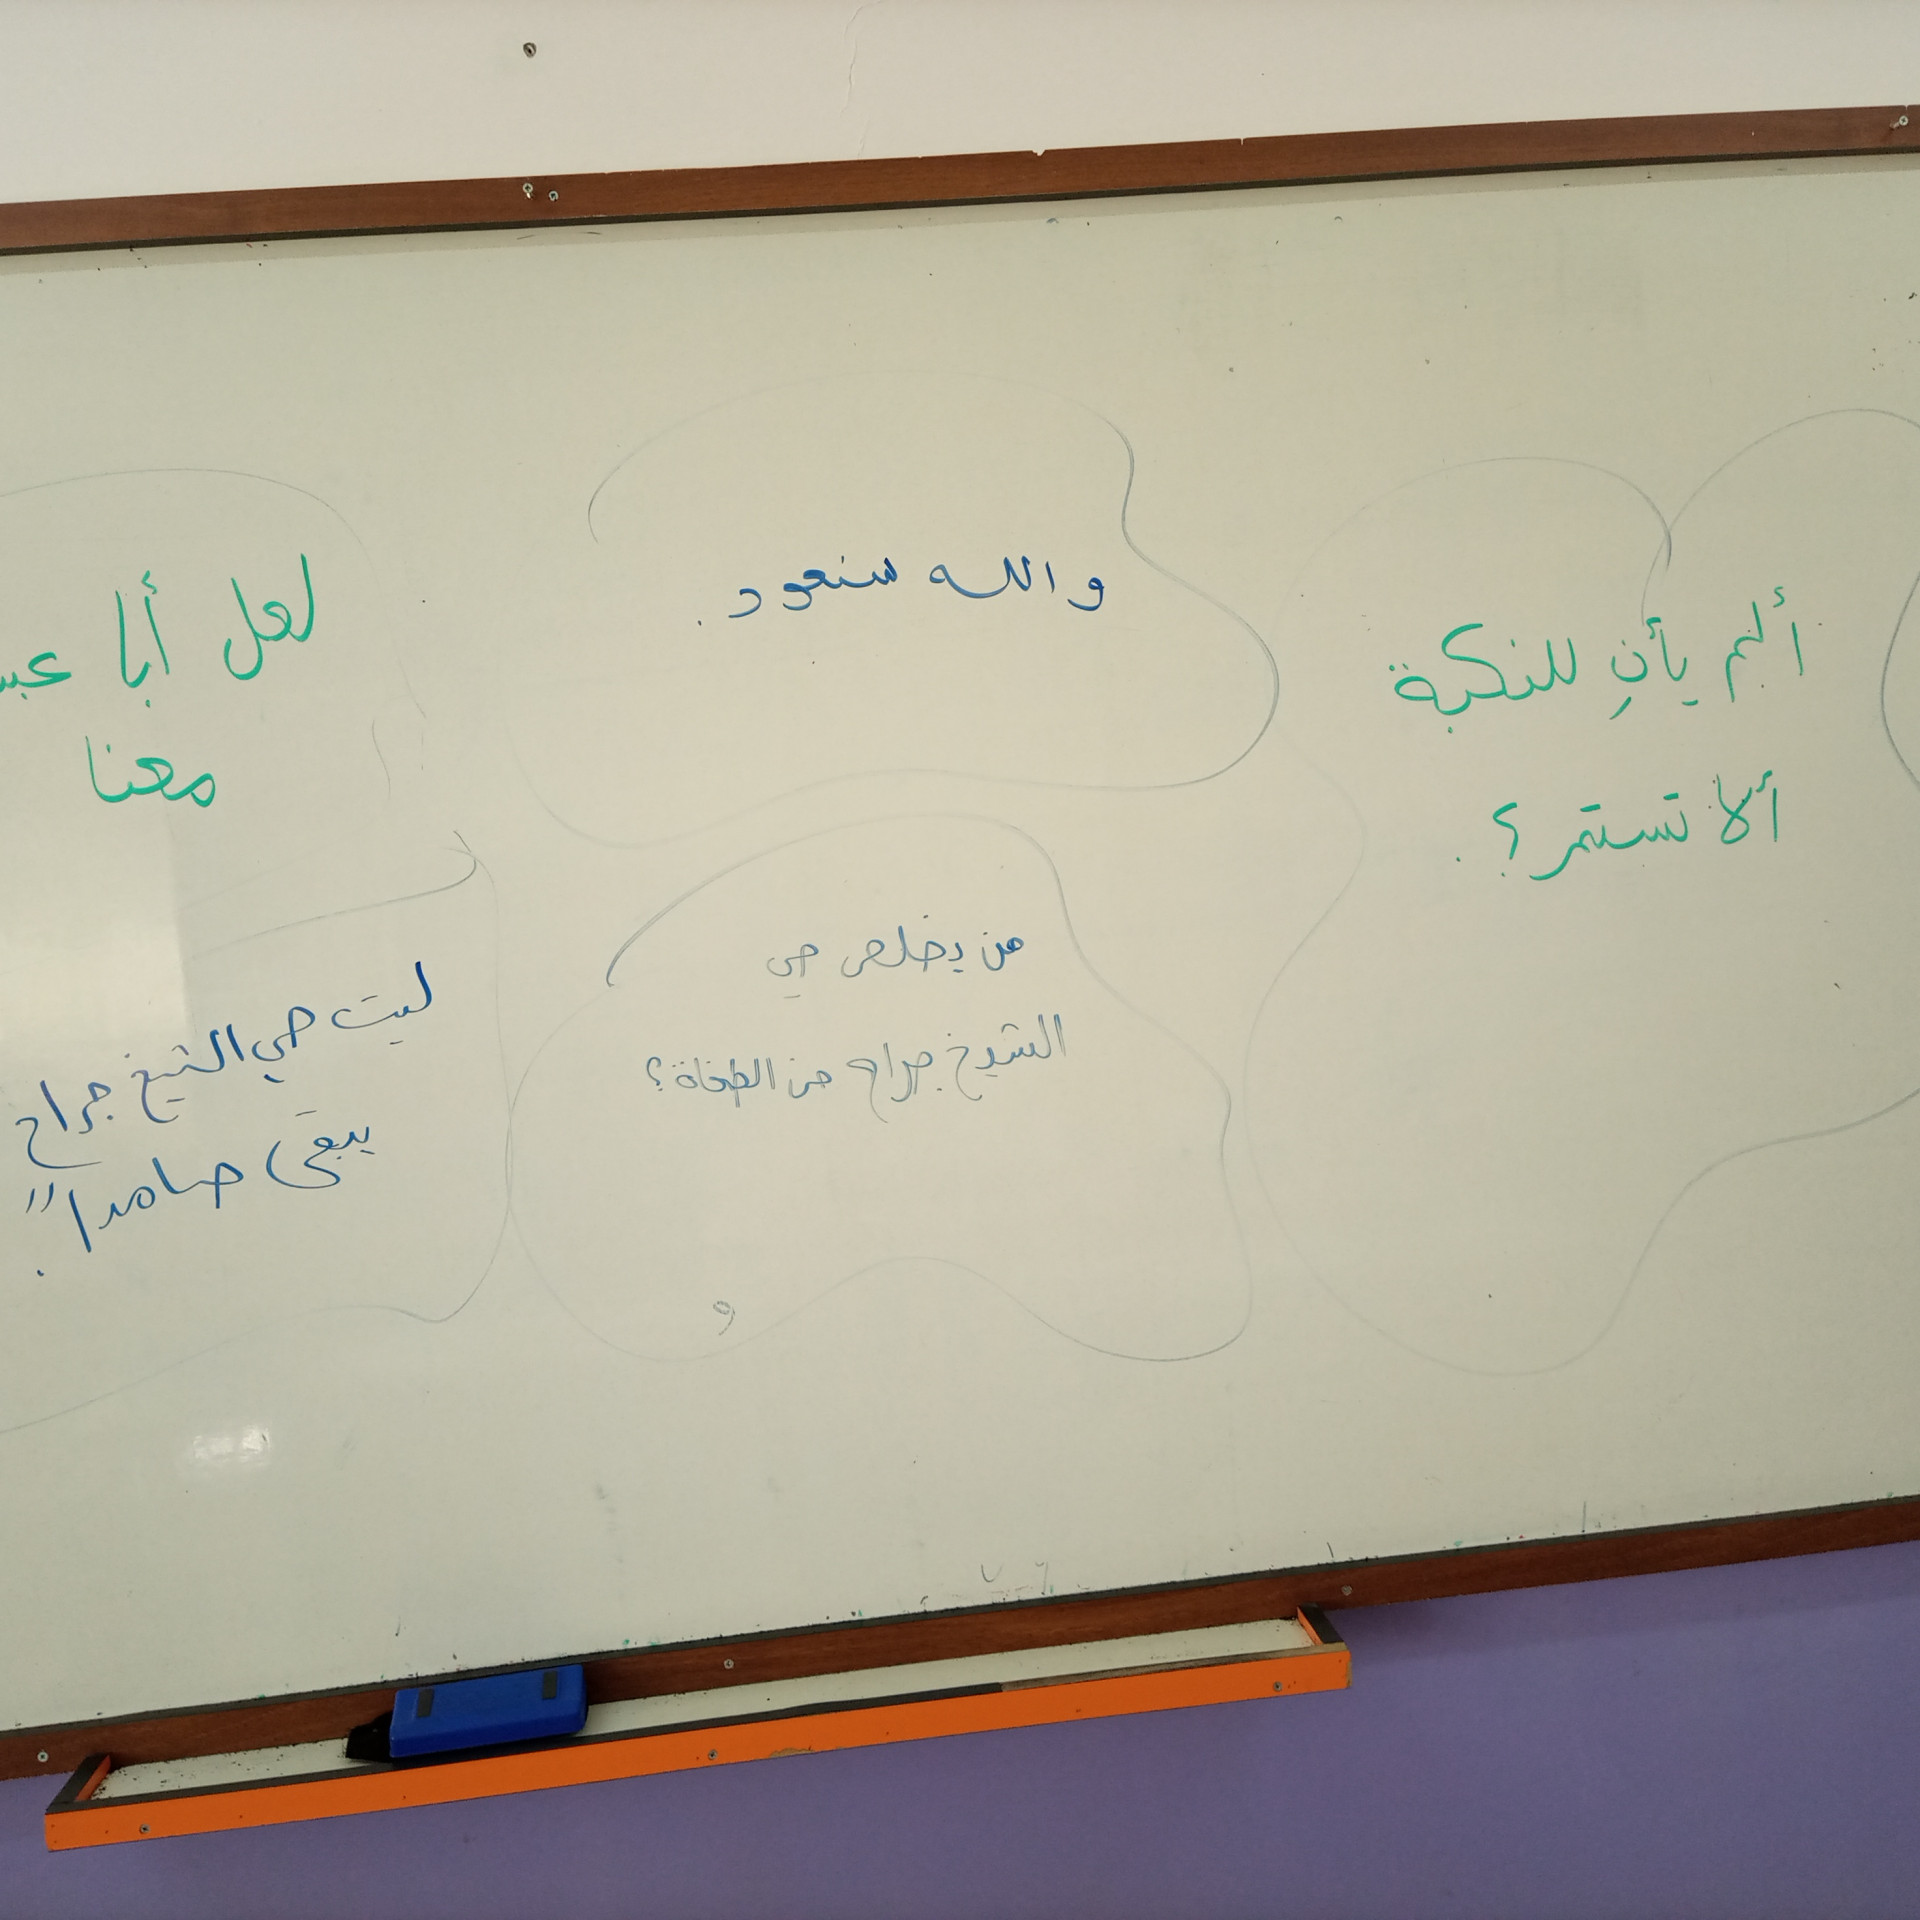 ألم يأنِ للنكبة
ألا تستمر؟.
والله سنعود.
من يخلص حي
الشيخ جراح من الطغاة؟
و
لعل أبا
معنا
ليت حي الشيخ جراح
يبقى صامدا".